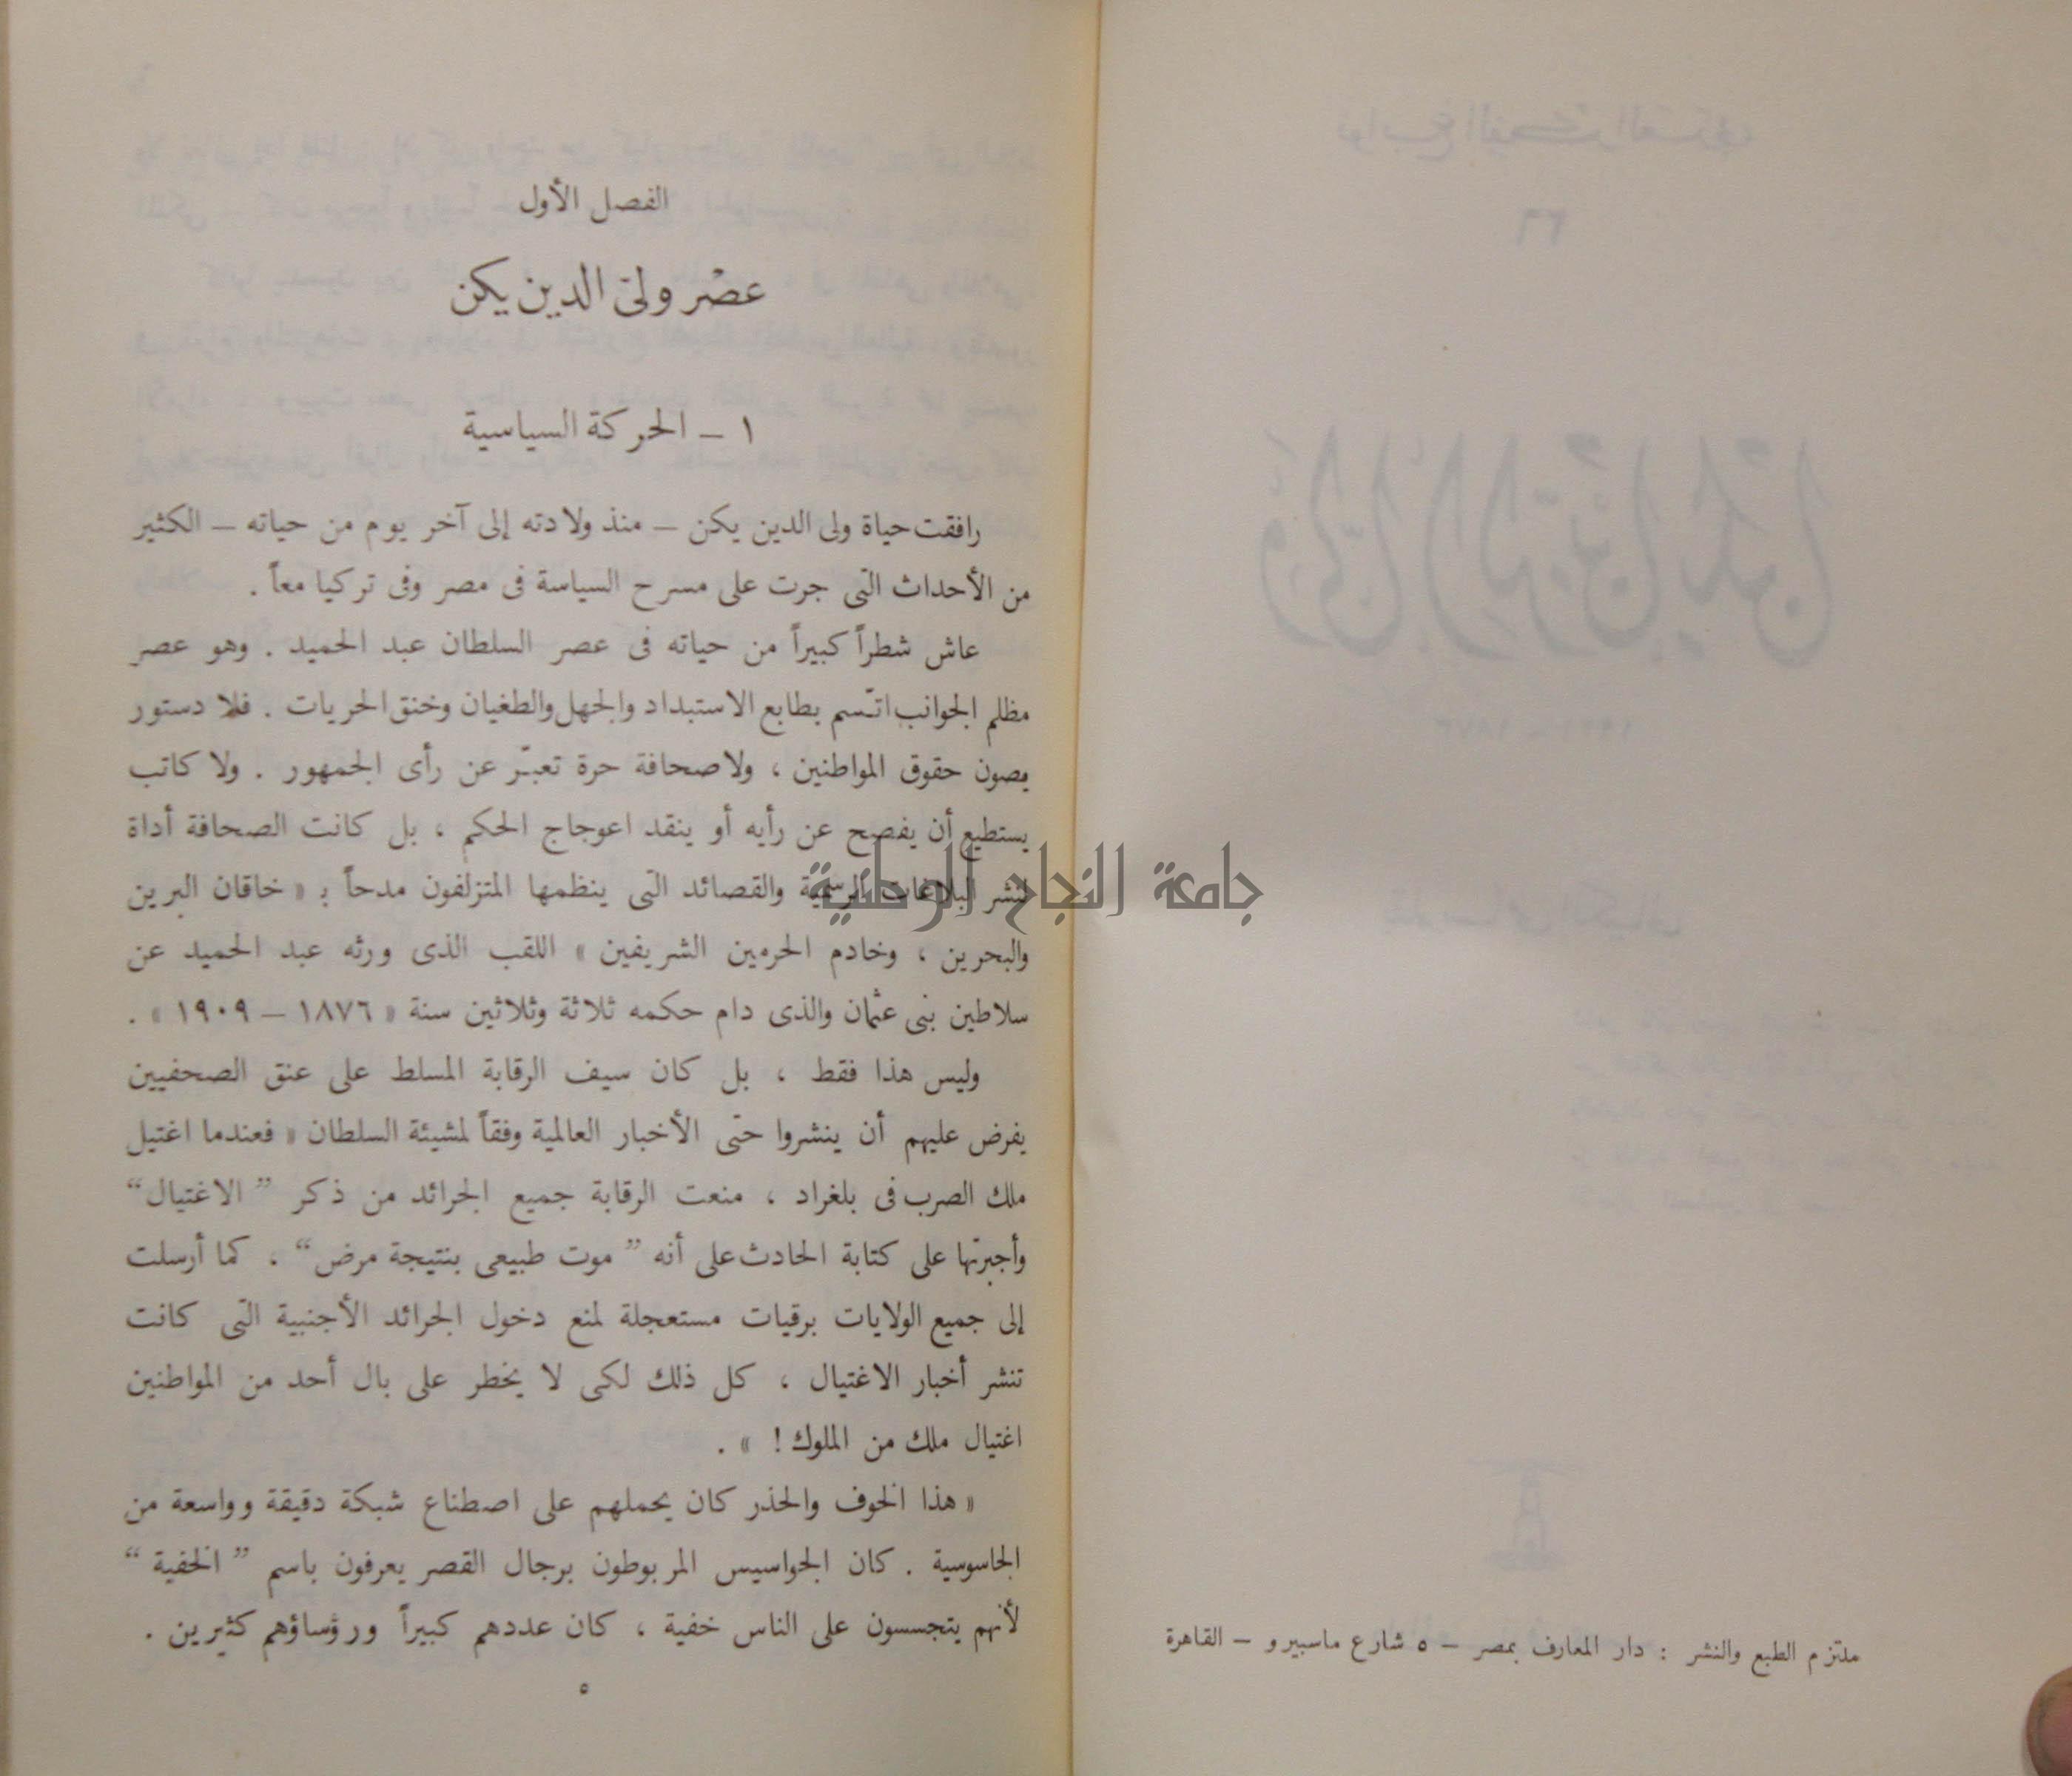 ملتزم الطبع والنشر : دار المعارف بمصر – ٥ شارع ماسبيرو – القاهرة
جامعة النجاح الوطنية
الفصل الأول
عصر ولى الدين يكن
١ – الحركة السياسية
رافقت حياة ولى الدين يكن – منذ ولادته إلى آخر يوم من حياته – الكثير
من الأحداث التى جرت على مسرح السياسة فى مصر وفى تركيا معاً .
عاش شطراً كبيراً من حياته فى عصر السلطان عبد الحميد . وهو عصر
مظلم الجوانب اتّسم بطابع الاستبداد والجهل والطغيان وخنق الحريات . فلا دستور
يصون حقوق المواطنين ، ولا صحافة حرة تعبّر عن رأى الجمهور . ولا كاتب
يستطيع أن يفصح عن رأيه أو ينقد اعوجاج الحكم ، بل كانت الصحافة أداة
لنشر البلاغات الرسمية والقصائد التى ينظمها المتزلفون مدحاً بـ « خاقان البرين
والبحرين ، وخادم الحرمين الشريفين » اللقب الذى ورثه عبد الحميد عن
سلاطين بنى عثمان والذى دام حكمه ثلاثة وثلاثين سنة « ١٨٧٦ – ١٩٠٩ » .
وليس هذا فقط ، بل كان سيف الرقابة المسلط على عنق الصحفيين
يفرض عليهم أن ينشروا حتى الأخبار العالمية وفقاً لمشيئة السلطان « فعندما اغتيل
ملك الصرب فى بلغراد ، منعت الرقابة جميع الجرائد من ذكر ” الاغتيال “
وأجبرتها على كتابة الحادث على أنه ” موت طبيعى بنتيجة مرض “ ، كما أرسلت
إلى جميع الولايات برقيات مستعجلة لمنع دخول الجرائد الأجنبية التى كانت
تنشر أخبار الاغتيال ، كل ذلك لكى لا يخطر على بال أحد من المواطنين
اغتيال ملك من الملوك ! » .
« هذا الخوف والحذر كان يحملهم على اصطناع شبكة دقيقة وواسعة من
الجاسوسية . كان الجواسيس المربوطون برجال القصر يعرفون باسم ” الخفية “
لأنهم يتجسسون على الناس خفية ، كان عددهم كبيراً ورؤساؤهم كثيرين .
٥